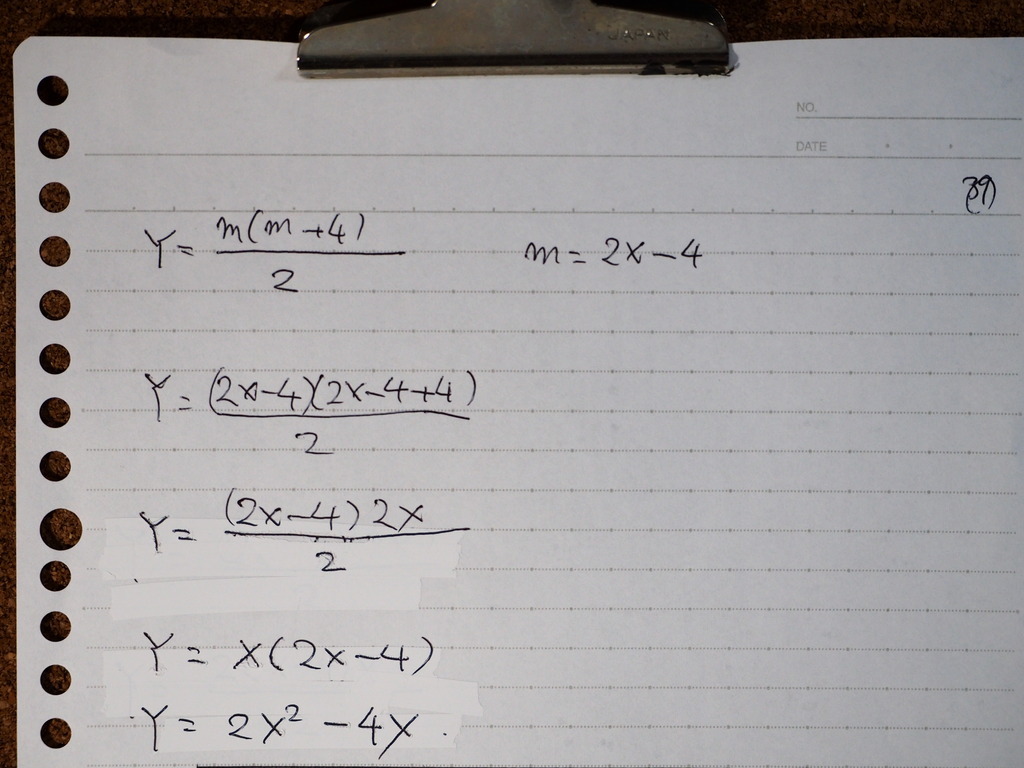 JAPAN
NO.
DATE
(39)
Y = m(m+4)/2    m = 2x-4
Y = (2x-4)(2x-4+4)/2
Y = (2x-4)2x/2
Y = x(2x-4)
Y = 2x² - 4x.